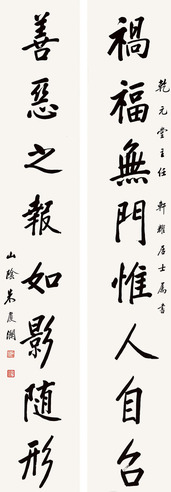 禍福無門惟人自召
乾元堂主任 軒轅居士属書
善惡之報如影随形
山陰朱度潤